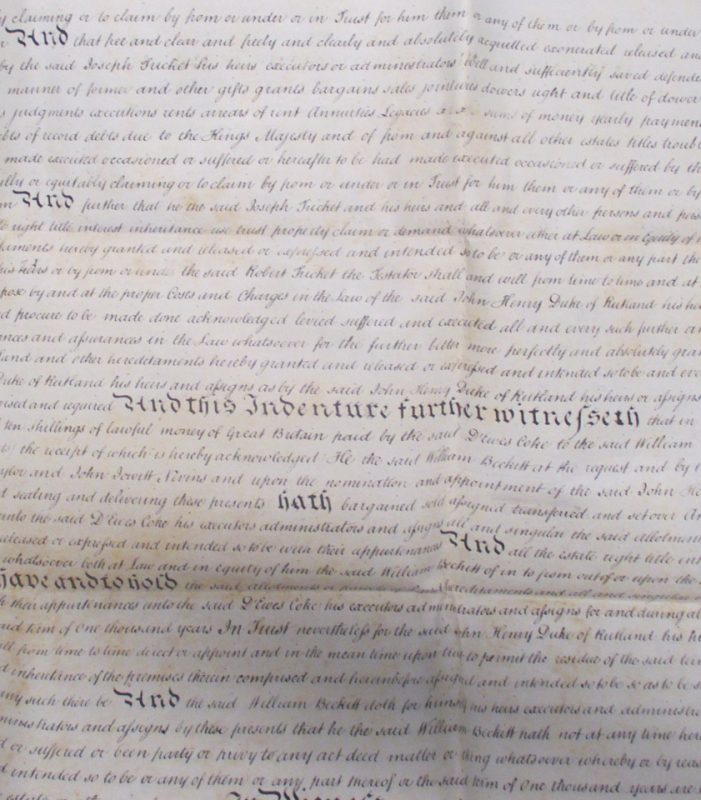 claiming or to claim by from or under or in Trust for him them or any of them or by from or under
And that free and clear and freely and clearly and absolutely acquitted exonerated released and
by the said Joseph Tricket his heirs executors or administrators well and sufficiently saved defende
manner of former and other gifts grants bargains sales jointures dowers right and title of dower
judgments executions rents arrears of rent Annuities Legacies sums of money yearly paymen
debts of record debts due to the Kings Majesty and of from and against all other estates titles troubl
made executed occasioned or suffered or hereafter to be had made executed occasioned or suffered by th
or equitably claiming or to claim by from or under or in Trust for him them or any of them or by
And further that he the said Joseph Tricket and his heirs and all and every other persons and pers
right title interest inheritance use trust property claim or demand whatsoever either at Law or in Equity of
hereby granted and released or expressed and intended so to be or any of them or any part the
his heirs or by from or under the said Robert Tricket the Testator shall and will from time to time and at
by and at the proper Costs and Charges in the Law of the said John Henry Duke of Rutland his he
procure to be made done acknowledged levied suffered and executed all and every such further
and assurances in the Law whatsoever for the further better more perfectly and absolutely gran
and other hereditaments hereby granted and released or expressed and intended so to be and eve
Duke of Rutland his heirs and assigns as by the said John Henry Duke of Rutland his heirs or assigns
and required And this Indenture further witnesseth that in
ten shillings of lawful money of Great Britain paid by the said D'Ewes Coke to the said William
the receipt of which is hereby acknowledged He the said William Beckett at the request and by
and John Jowitt Nevins and upon the nomination and appointment of the said John He
sealing and delivering these presents hath bargained sold assigned transferred and set over An
unto the said D'Ewes Coke his executors administrators and assigns all and singular the said allotment
released or expressed and intended so to be with their appurtenances And all the estate right title int
whatsoever both at Law and in equity of him the said William Beckett of in to from out of or upon the
have and to hold the said allotments or hereditaments and all and singular
their appurtenances unto the said D'Ewes Coke his executors administrators and assigns for and during al
said term of One thousand years In Trust nevertheless for the said John Henry Duke of Rutland his h
from time to time direct or appoint and in the mean time upon trust to permit the residue of the said ter
inheritance of the premises therein comprised and hereinbefore assigned and intended so to be so as to be
any such there be And the said William Beckett doth for himself his heirs executors and administra
administrators and assigns by these presents that he the said William Beckett hath not at any time her
or suffered or been party or privy to any act deed matter or thing whatsoever whereby or by reas
intended so to be or any of them or any part thereof or the said term of One thousand years are
In Witness